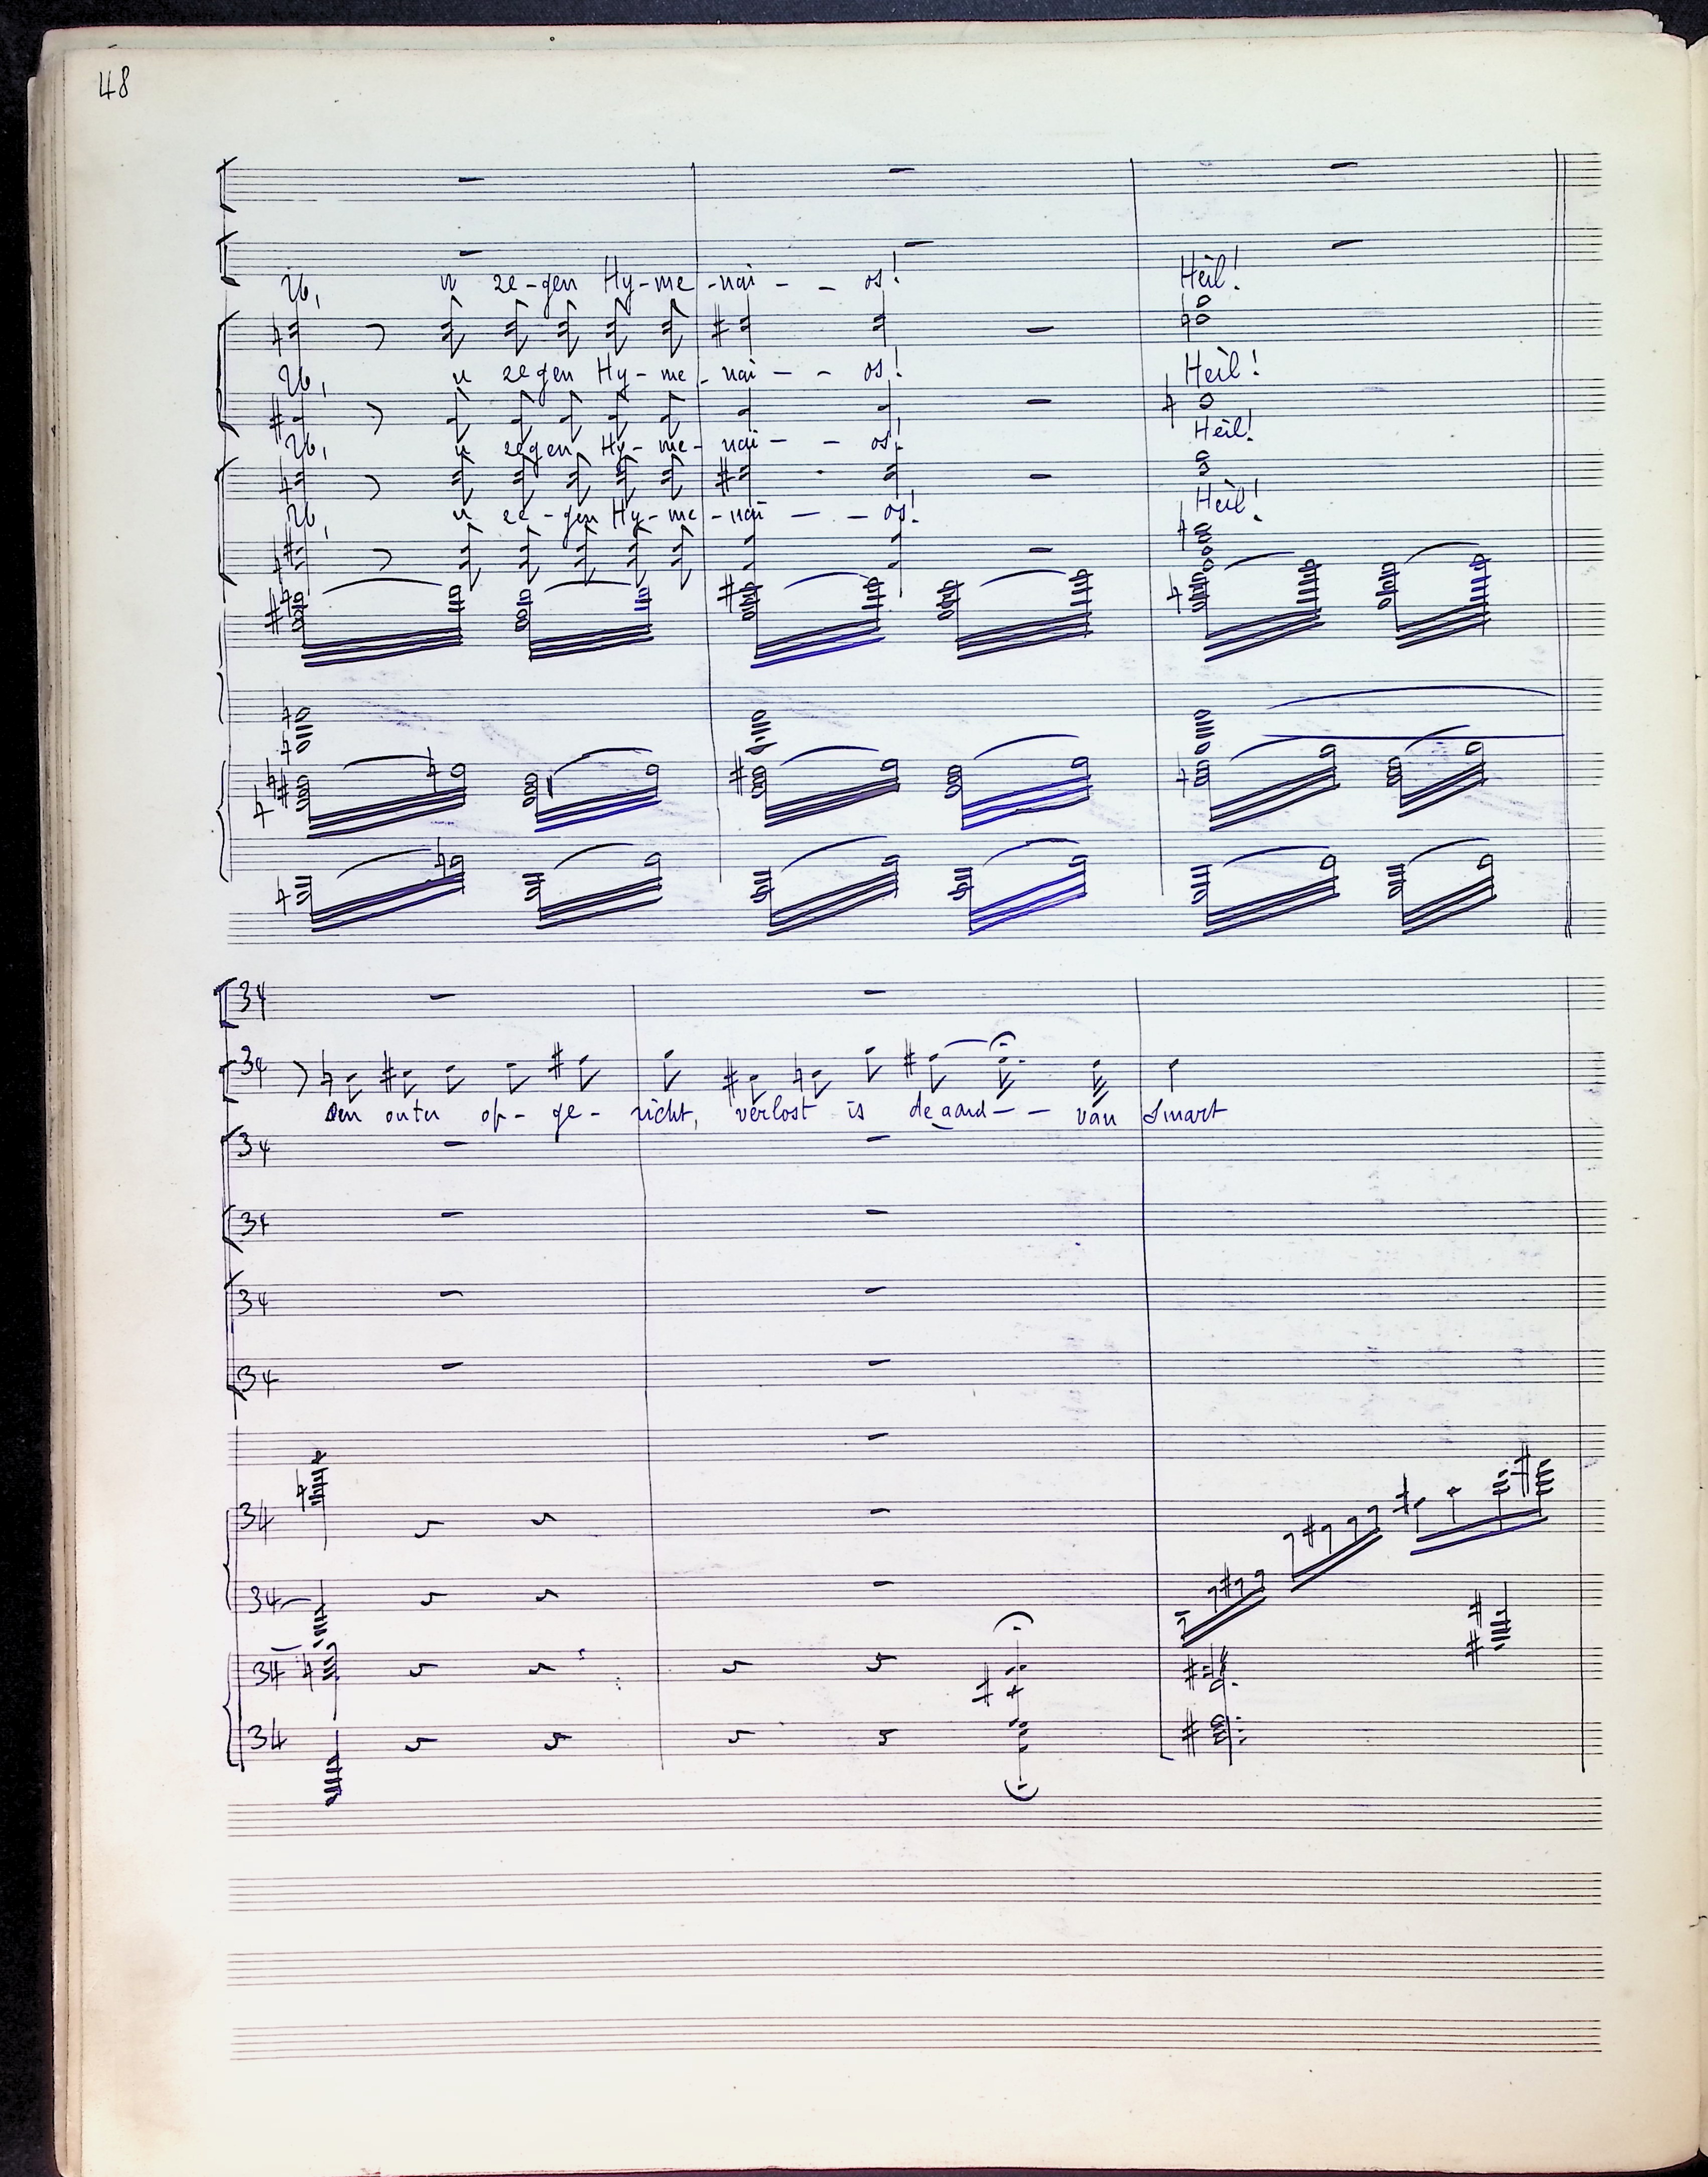 48
U, u ze-gen Hy-me-nai - - os! Heil!
U, u zegen Hy-me-nai - - os! Heil!
U, u zegen Hy-me-nai - - os! Heil!
U, u ze-gen Hy-me-nai - - os! Heil!
34
34
Den outer op-ge-richt, verlost is de aard - - van smart
34
34
34
34
34
34
34
34